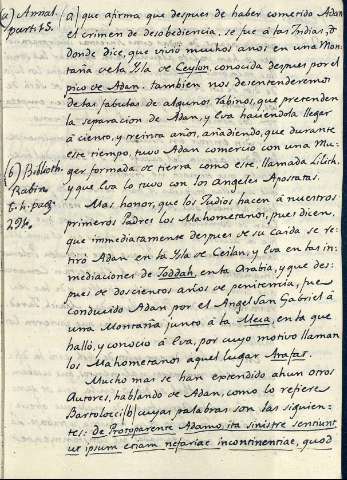 (a) Annal.
part. 45.
(b) Biblioth.
Rabin.
t. 4. pag.
294.
(a) que afirma que despues de haber cometido Adan
el crimen de desobediencia, se fue á las Indias,
donde dice, que vivió muchos años en una Mon-
taña de la Ysla de Ceylon, conocida despues por el
pico de Adan. tambien nos desentenderemos
de las fabulas de algunos Rabinos, que pretenden
la separacion de Adan, y Eva haciendola llegar
á ciento, y treinta años, añadiendo, que durante
este tiempo, tuvo Adan comercio con una Mu-
ger formada de tierra como este, llamada Lilith,
y que Eva lo tuvo con los Angeles Apostatas.
Mas honor, que los Judios hacen á nuestros
primeros Padres los Mahometanos, pues dicen,
que immediatamente despues de su caida se re-
tiró Adan en la Ysla de Ceilan, y Eva en las in-
mediaciones de Joddah, en la Arabia, y que des-
pues de doscientos años de penitencia, fue
conducido Adan por el Angel San Gabriel á
una Montaña junto á la Meca, en la que
halló, y conoció á Eva, por cuyo motivo llaman
los Mahometanos aquel lugar Arafas.
Mucho mas se han extendido ahun otros
Autores, hablando de Adan, como lo refiere
Bartolocci (b) cuyas palabras son las siguien-
tes: de Protoparente Adamo, ita sinistre sentiunt
ut ipsum etiam nefariae incontinentiae, quod